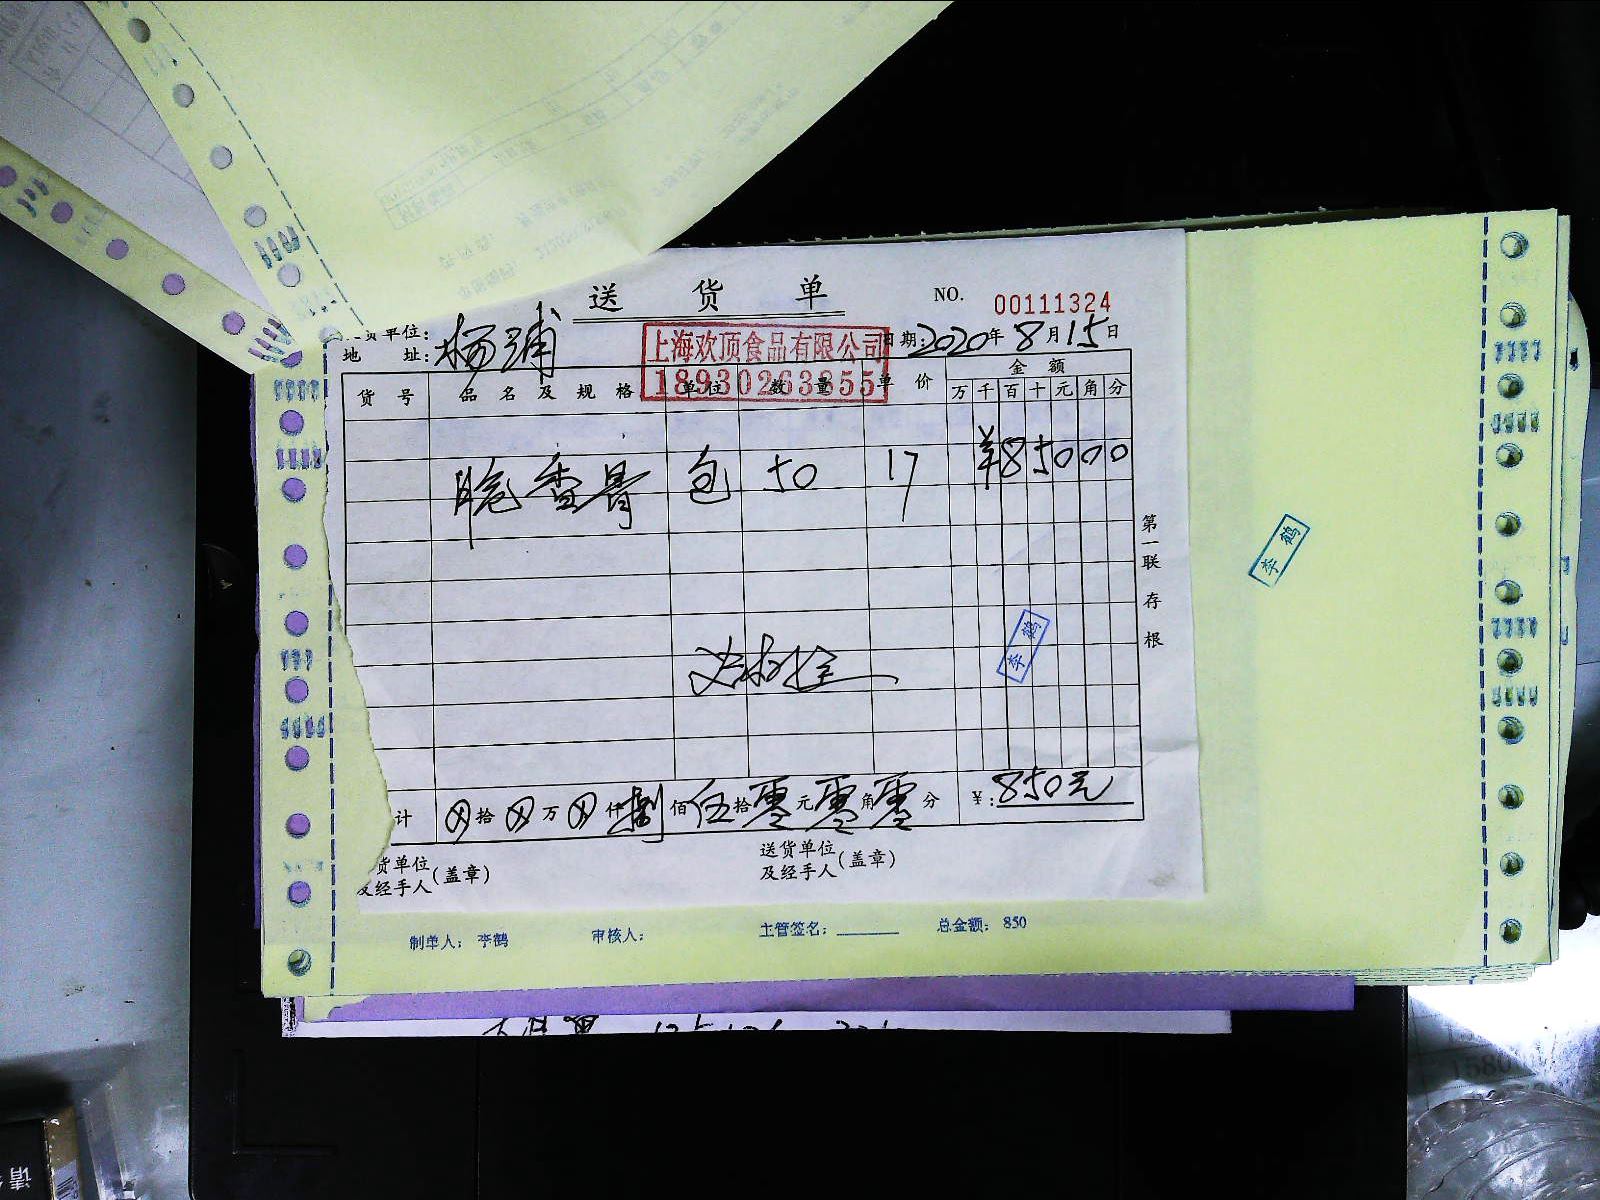 送 货 单
NO. 00111324
货单位:
地 址: 杨浦
上海欢顶食品有限公司
18930263855
日期: 2020年 8月 15日
货 号 品 名 及 规 格 单位 数 量 单 价 金 额
万 千 百 十 元 角 分
脆香骨 包 50 17 ¥85000
第一联 存根
李鹤
李鹤
计 ⊗拾 ⊗万 ⊗仟 捌佰 伍拾 零元 零角 零分 ¥: 850元
货单位
及经手人(盖章)
送货单位
及经手人(盖章)
制单人: 李鹤 审核人: 主管签名: 总金额: 850
请